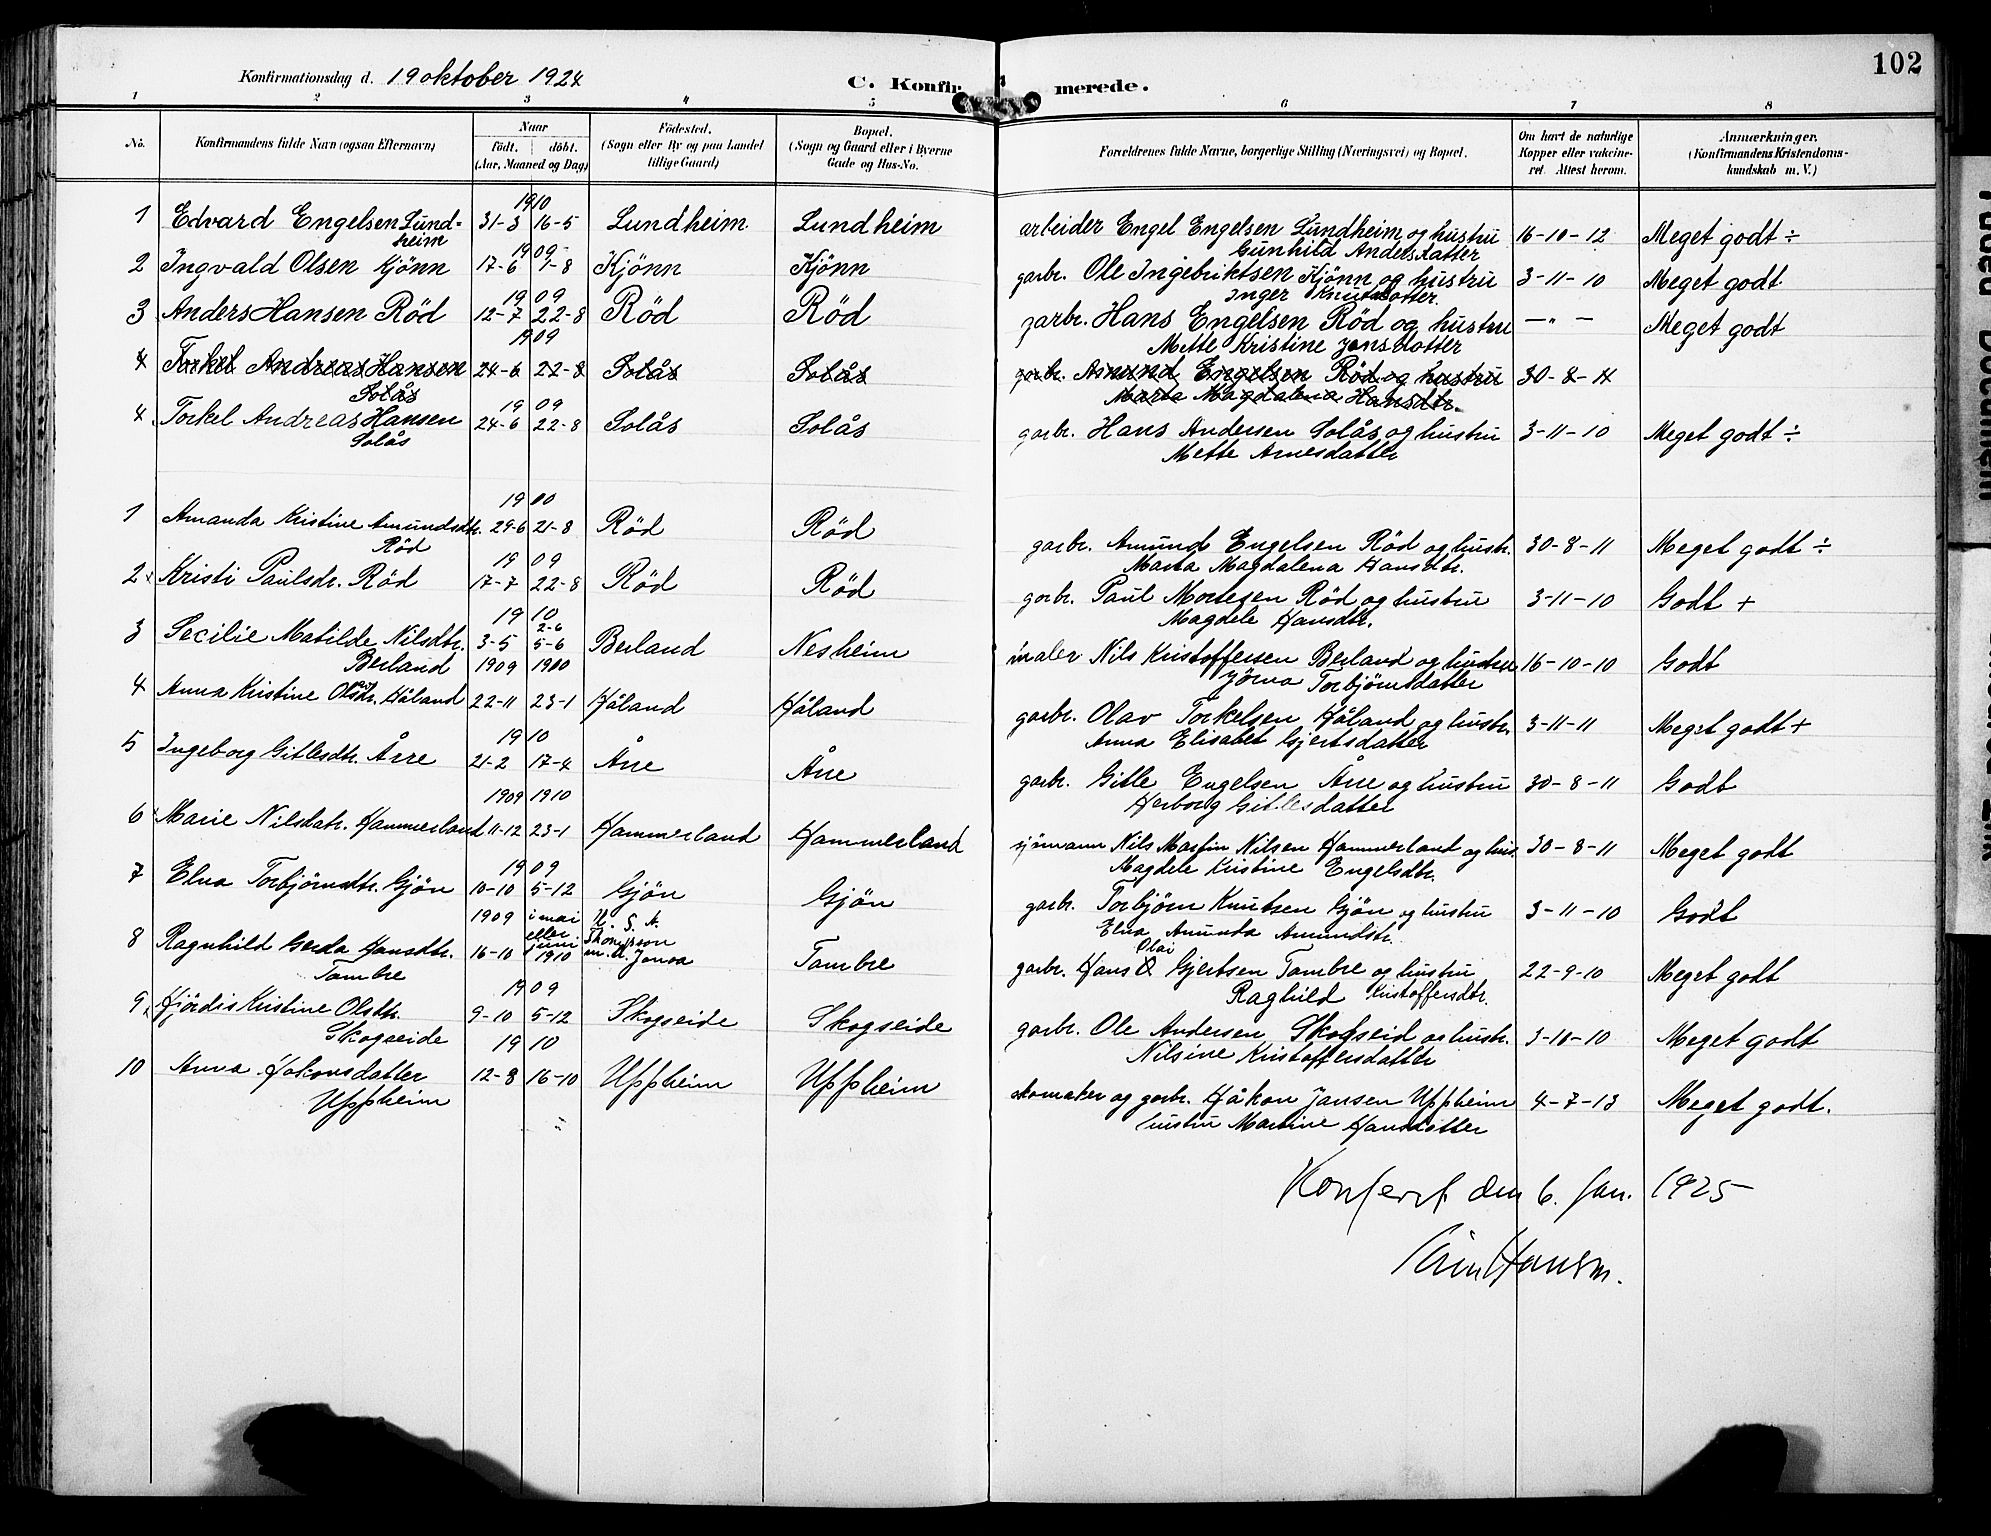 Konfirmationsdag d. 19 oktober 1924
C. Konfirmerede.
102
1 2 3 4 5 6 7 8
No.
Konfirmandens fulde Navn (ogsaa Efternavn)
Naar
födt. döbt.
(Aar, Maaned og Dag)
Födested.
(Sogn eller By og paa Landet
tillige Gaard)
Bopæl.
(Sogn og Gaard eller i Byerne
Gade og Hus-No.
Forældrenes fulde Navne, borgerlige Stilling (Næringsvei) og Bopæl.
Om havt de naturlige
Kopper eller vakcine-
ret. Attest herom.
Anmærkninger.
(Konfirmandens Kristendoms-
kundskab m. V.)
1910
1 Edvard Engelsen Lund- 31-3 16-5 Lundheim Lundheim arbeider Engel Engelsen Lundheim og hustru 16-10-12 Meget godt ÷
heim Gunhild Andersdatter
1909
2 Ingvald Olsen Kjönn 17-6 1-8 Kjönn Kjönn garbr. Ole Ingebriktsen Kjönn og hustru 3-11-10 Meget godt
Inger Knutsdotter.
1909
3 Anders Hansen Röd 12-7 22-8 Röd Röd garbr. Hans Engelsen Röd og hustru — " — Meget godt
Mette Kristine Jensdotter
1909
4 Torkel Andreas Hansen 24-6 22-8 Solås Solås garbr. Amund Engelsen Röd og hustru 30-8-11
Solås Marta Magdalena Hansdtr.
1909
4 Torkel Andreas Hansen 24-6 22-8 Solås Solås garbr. Hans Andersen Solås og hustru 3-11-10 Meget godt ÷
Solås Mette Arnesdatter
1900
1 Amanda Kristine Amundsdtr. 29-6 21-8 Röd Röd garbr. Amund Engelsen Röd og hustr. 30-8-11 Meget godt ÷
Röd Marta Magdalena Hansdtr.
1909
2 Kristi Paulsdr. Röd 17-7 22-8 Röd Röd garbr. Paul Mortesen Röd og hustru 3-11-10 Godt +
Magdele Hansdtr.
1910
2-6
3 Secilie Matilde Nilsdtr. 3-5 5-6 Berland Nesheim maler Nils Kristoffersen Berland og hustru 16-10-10 Godt
Berland Jörna Torbjörnsdatter
1909 1910
4 Anna Kristine Olsdtr. Håland 22-11 23-1 Håland Håland garbr. Olav Torkelsen Håland og hustr. 3-11-11 Meget godt +
Anna Elisabet Gjertsdatter
1910
5 Ingeborg Gitlesdtr. Årre 21-2 17-4 Åre Åre garbr. Gitle Engelsen Åre og hustru 30-8-11 Godt
Herborg Gitlesdatter
1909 1910
6 Marie Nilsdatr. Hammerland 11-12 23-1 Hammerland Hammerland sjömann Nils Martin Nilsen Hammerland og hus. 30-8-11 Meget godt
Magdele Kristine Engelsdtr.
1909
7 Elna Torbjörnsdtr. Gjön 10-10 5-12 Gjön Gjön garbr. Torbjörn Knutsen Gjön og hustru 3-11-10 Godt
Elna Amunda Amundstr.
1909 i mai U. S. A.
eller Thompson
8 Ragnhild Gerda Hansdtr. 16-10 juni 1910 Jowa Tambre garbr. Hans Olai Gjertsen Tambre og hustru 22-9-10 Meget godt
Tambre Raghild Kristoffersdtr.
1909
9 Hjördis Kristine Olsdtr. 9-10 5-12 Skogseide Skogseide garbr. Ole Andersen Skogseid og hustr. 3-10-10 Meget godt
Skogseide Nilsine Kristoffersdatter
1910
10 Anna Hakonsdatter 12-8 16-10 Uppheim Uppheim skomaker og garbr. Håkon Jansen Uppheim 4-7-13 Meget godt.
Uppheim hustru Martine Hansdatter
Konferert den 6. jan. 1925